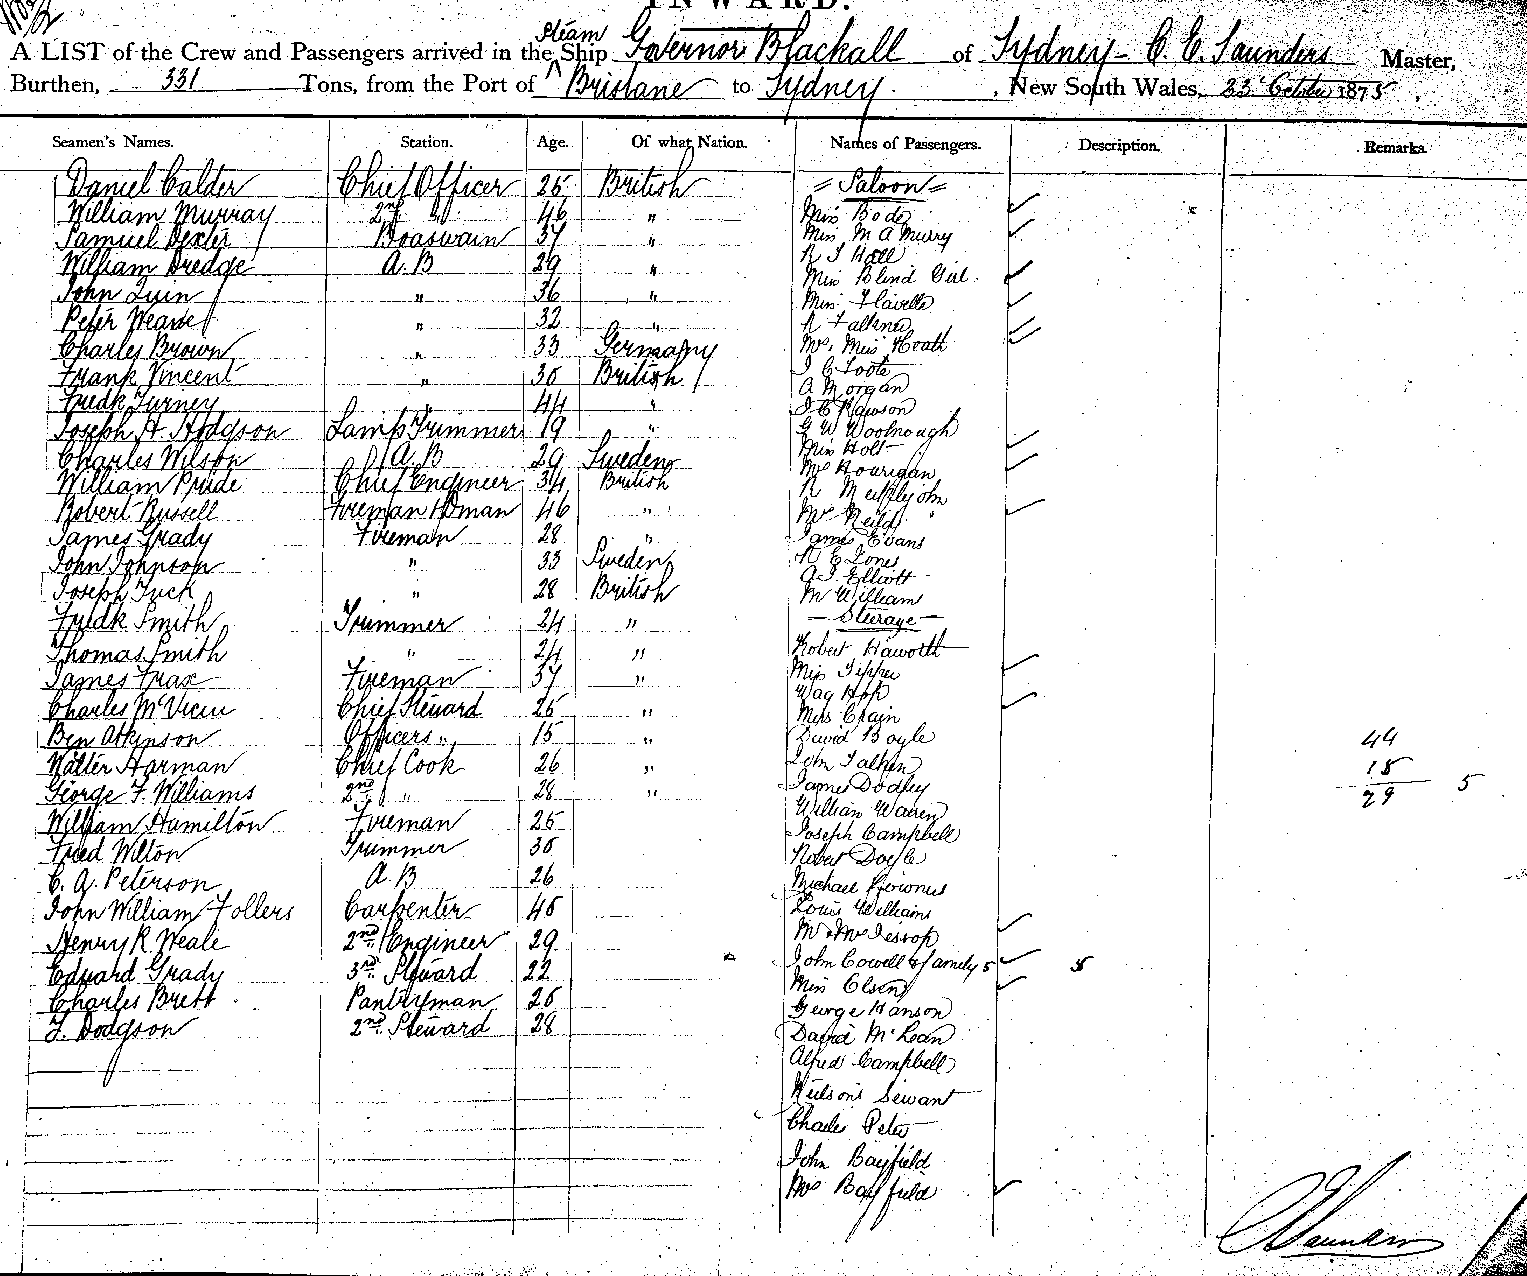 INWARD.
A LIST of the Crew and Passengers arrived in the Steam Ship Governor Blackall of Sydney - C. E. Saunders Master,
Burthen, 331 Tons, from the Port of Brisbane to Sydney. , New South Wales, 23 October 1875 .
Seamen's Names. Station. Age. Of what Nation. Names of Passengers. Description. Remarks.
Daniel Calder Chief Officer 25 British = Saloon =
William Murray 2nd " 46 " Miss Bode
Samuel Dexter Boaswain 37 " Miss M A Murry
William Dredge A.B 29 " R J Hall
John Quin " 36 " Miss Blind Girl
Peter " 32 " Miss Flavelle
Charles Brown " 33 Germany R Falkner
Frank Vincent " 30 British Mrs. Miss Heath
Fredk Turney " 44 " J C Foote
Joseph H. Hodgson Lamp Trimmer 19 " A Morgan
Charles Wilson A.B 29 Sweden J C Rawson
William Pride Chief Engineer 34 British G W Woolnough
Robert Russell Fireman 46 " Miss Holt
James Grady Fireman 28 " Mrs Hourigan
John Johnson " 33 Sweden R Meiklejohn
Joseph Tuck " 28 British Mrs Neild
Fredk Smith Trimmer 24 " James Evans
Thomas Smith " 24 " R E Jones
James Frax Fireman 37 " A J Elliott
Charles McVicui Chief Steward 25 " M William
Ben Atkinson Officers " 15 " - Steerage -
Walter Harman Chief Cook 26 " Robert Haworth
George F. Williams 2nd " 28 " Miss Tipper
William Hamilton Fireman 25 Wag Hop
Fred Wilton Trimmer 30 Miss Crain
C. A. Peterson A.B 26 David Boyle
John William Follers Carpenter 40 John
Henry R. Weale 2nd Engineer 29 James Dodley
Edward Grady 3rd. Steward 22 William Warren
Charles Brett Pantryman 20 Joseph Campbell
J. Dodgson 2nd. Steward 28 Robert Doyle
Michael
Louis Williams
Mr & Mrs Jessop
John Cowell & family 5 5
Miss Olsen
George Hanson
David McLean
Alfred Campbell
Neilson's Servant
Charles Peter
John Bayfield
Mrs Bayfield
44
15
29 5
C E Saunders